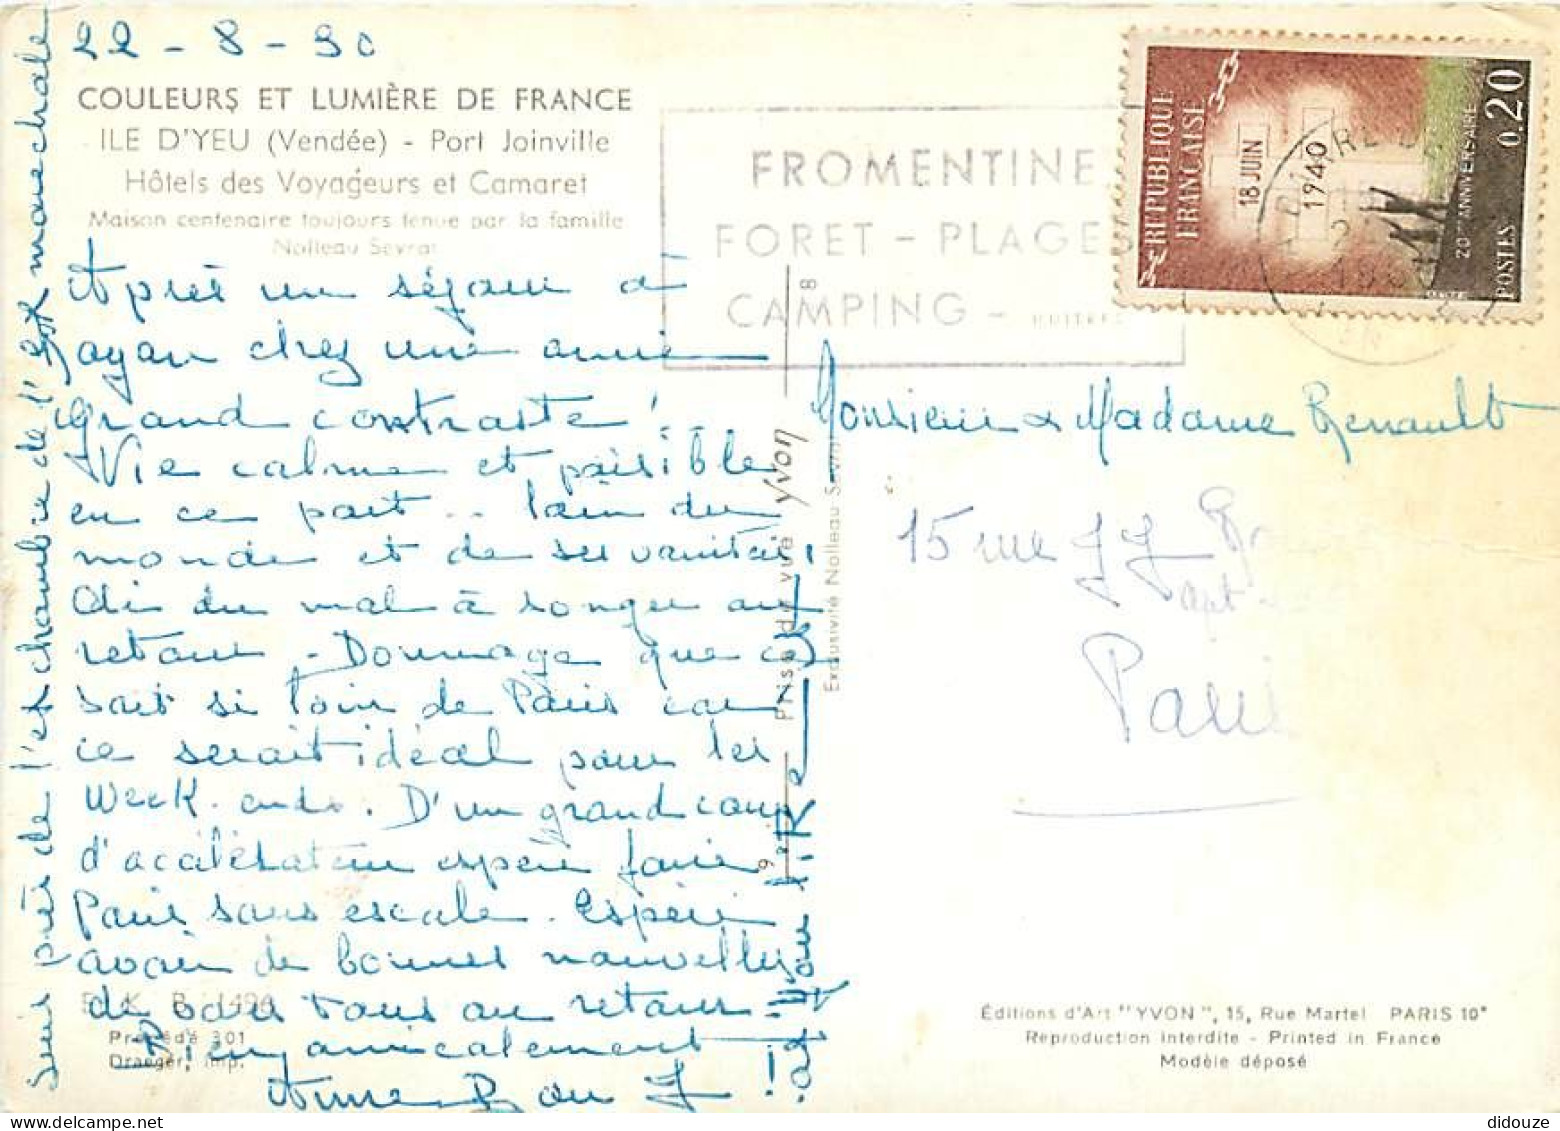 22-8-90
COULEURS ET LUMIÈRE DE FRANCE
ILE D'YEU (Vendée) - Port Joinville
Hôtels des Voyageurs et Camaret
Maison centenaire toujours tenue par la famille
Nolleau Sevrat
Après un séjour à
Royan chez une amie
Grand contraste !...
Vie calme et paisible
en ce port .. loin du
monde et de ses vanités,
Ai du mal à songer au
retour - Dommage que ce
soit si loin de Paris car
ce serait idéal pour les
week-ends. D'un grand coup
d'accélérateur espère faire
Paris sans escale. Espère
avoir de bonnes nouvelles
de vous tous au retour
Bien amicalement
suis près de l'ex chambre de l'ex marechale
FROMENTINE
FORET - PLAGES
CAMPING - HUITRES
RÉPUBLIQUE
FRANÇAISE
18 JUIN
1940
20e ANNIVERSAIRE
POSTES
0,20
Monsieur & Madame Renault
15 rue JJ
apt
Paris
Prise de vue Yvon
Exclusivité Nolleau Sevrat
E. K. B. 1496
Procédé 301
Draeger, imp.
Éditions d'Art "YVON", 15, Rue Martel PARIS 10e
Reproduction interdite - Printed in France
Modèle déposé
didouze